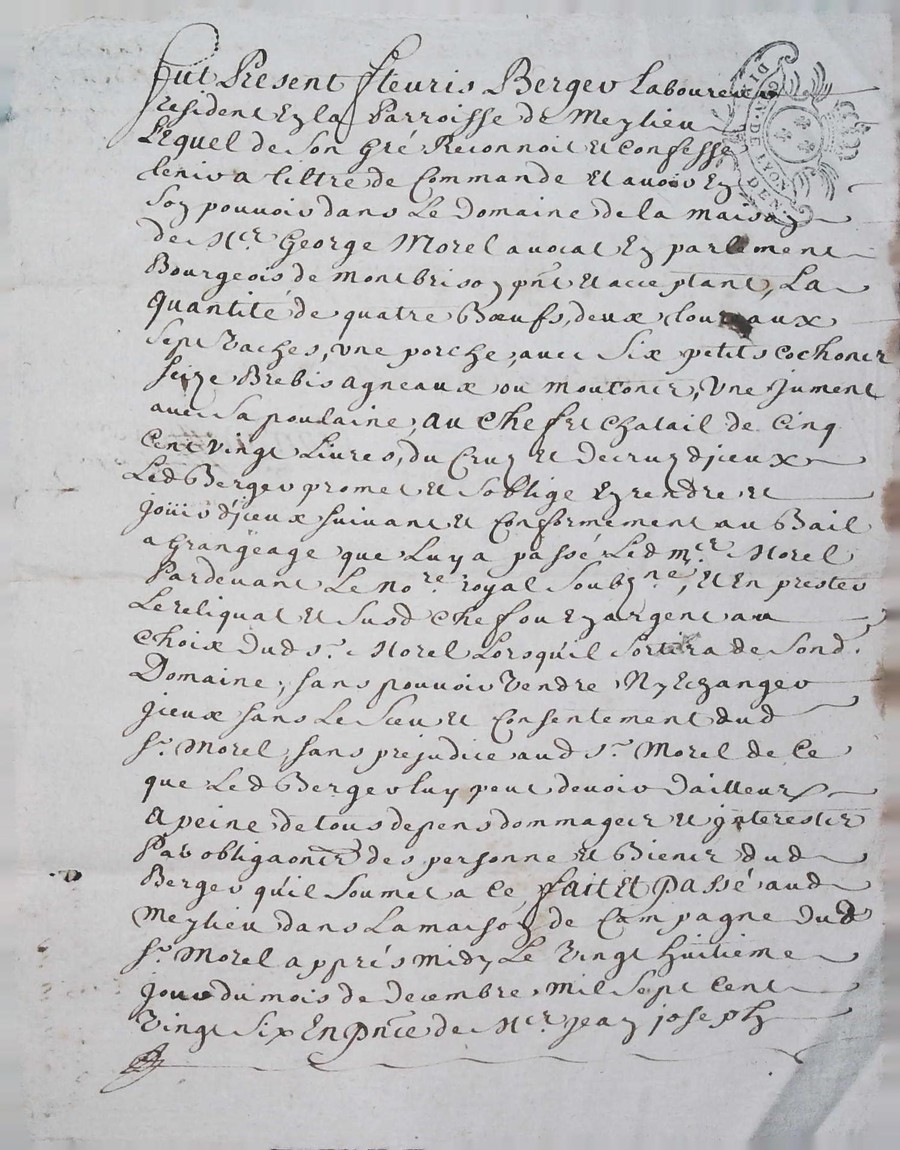 Fut Present fleuris Berger Laboureur
resident En la Parroisse de Meylieu
Lequel de Son gré Reconnoit et Confesse
tenir a tiltre de Commande Et avoir En
Son pouvoir dans Le Domaine de la maison
de Me. George Morel avocat En parlement
Bourgeois de montbrison pnt Et acceptant, La
quantité de quatre Bœufs, deux
Sept Vaches, une porche, avec Six petits cochons
seize Brebis agneaux ou moutons, Une Jument
avec Sa poulaine, au chef et chatail de Cinq
Cent vingt Livres, du Cruz Et decruz djceux
Led Berger promet Et Soblige En rendre Et
joüir djceux suivant Et Conformement au Bail
a Grangëage que Luy a passé Led me. Morel
Pardevant Le nore. royal Soubzne, Et En prester
Le reliquat Et Susd chef ou En argent au
choix dud sr. Morel Lorsqu'il Sortira de Sond.
Domaine, sans pouvoir Vendre Ny Echanger
jceux sans Le Sceu Et Consentement dud
sr. Morel, sans prejudice aud sr. Morel de Ce
que Led Berger luy peut devoir dailleurs
a peine de tous depens dommages Et jnterests
Par obligaons des personne Et Biens dud
Berger qu'il Soumet a Ce, fait Et Passé aud
Meylieu dans La maison de Campagne dud
sr. Morel apprés midy Le Vingt huitieme
jour du mois de decembre mil Sept Cent
Vingt Six En pnce de Me. jean joseph
GEN. DE LYON
DEN.